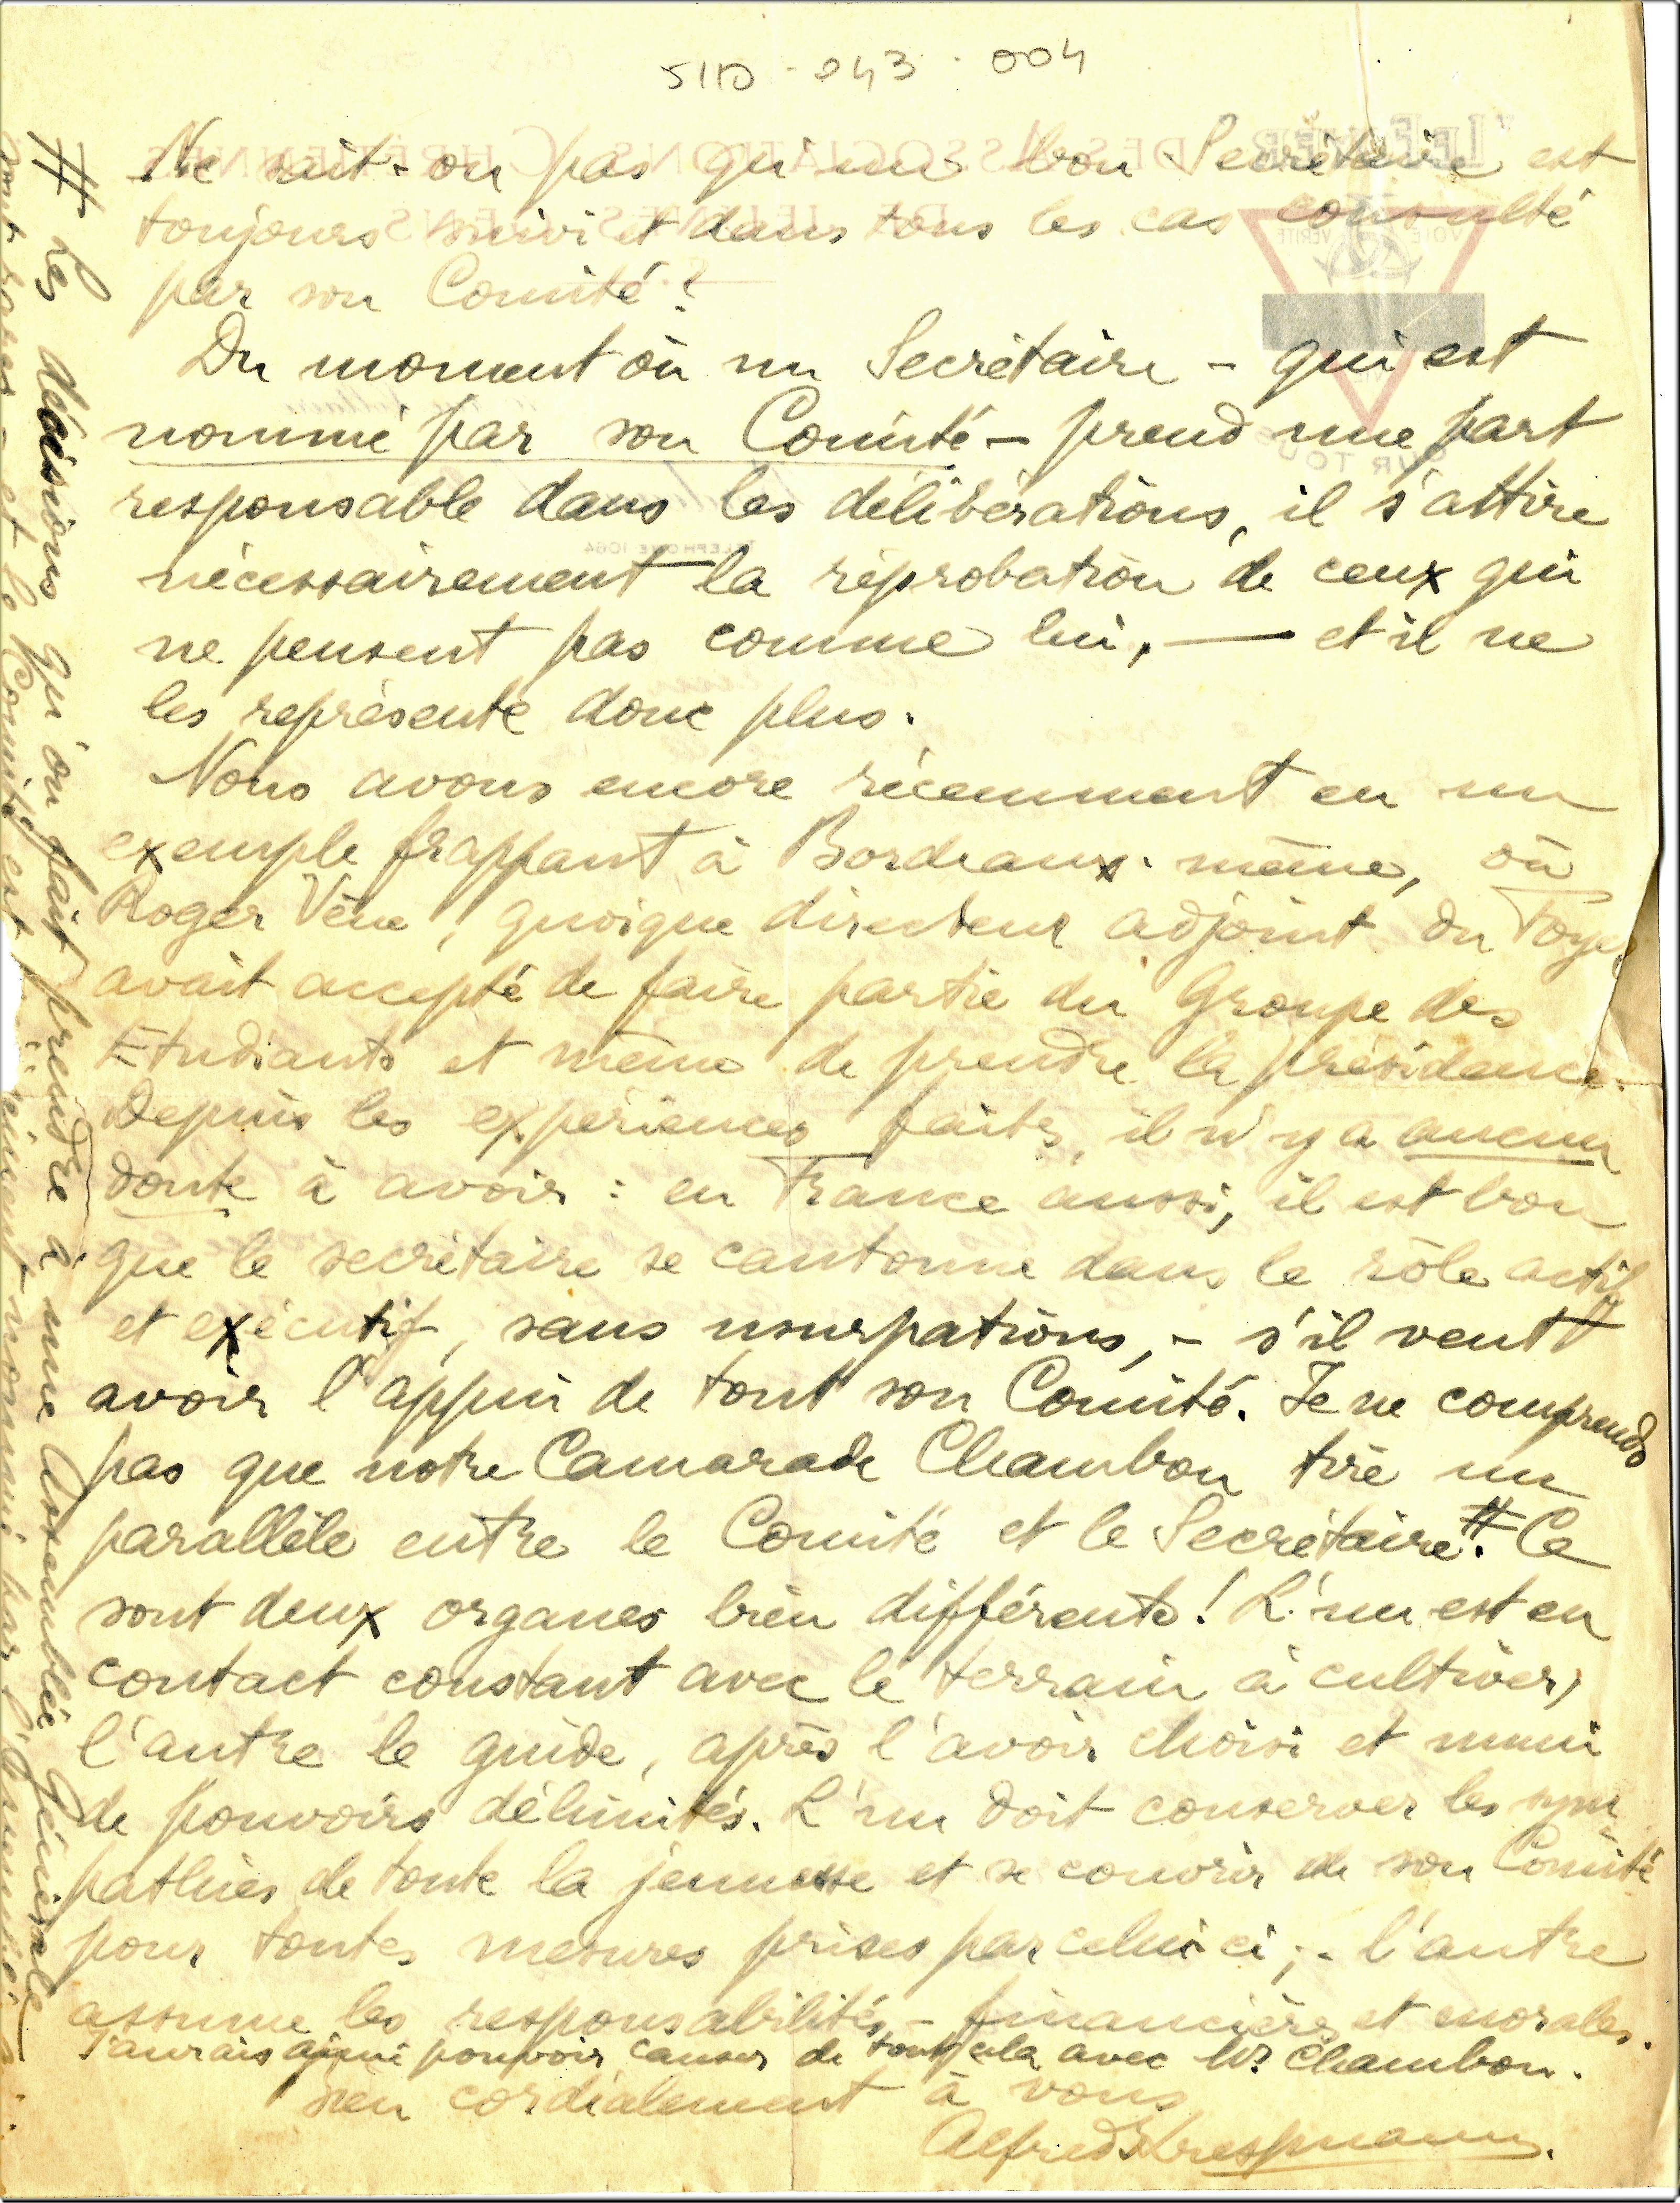 51D - 043 - 004
Ne sait-on pas qu'un bon Secrétaire est
toujours suivi et dans tous les cas consulté
par son Comité?
Du moment où un Secrétaire - qui est
nommé par son Comité - prend une part
responsable dans les délibérations, il s'attire
nécessairement la réprobation de ceux qui
ne pensent pas comme lui, — et il ne
les représente donc plus.
Nous avons encore récemment eu un
exemple frappant à Bordeaux-même, où
Roger Vène, quoique directeur adjoint du Foyer
avait accepté de faire partie du Groupe des
Etudiants et même de prendre la présidence.
Depuis les expériences faites, il n'y a aucun
doute à avoir : en France aussi, il est bon
que le secrétaire se cantonne dans le rôle actif
et exécutif, sans usurpations, - s'il veut
avoir l'appui de tout son Comité. Je ne comprends
pas que notre Camarade Chambon tire un
parallèle entre le Comité et le Secrétaire.# Ce
sont deux organes bien différents! L'un est en
contact constant avec le terrain à cultiver,
l'autre le guide, après l'avoir choisi et muni
de pouvoirs délimités. L'un doit conserver les sym-
pathies de toute la jeunesse et se couvrir de son Comité
pour toutes mesures prises par celui-ci; - l'autre
assume les responsabilités - financières et morales.
J'aurais aimé pouvoir causer de tout cela avec Mr. Chambon.
Bien cordialement à vous
Alfred Krespmann.
# Les décisions qu'on fait prendre à une Assemblée Générale
sont - et le Comité est nommé par l'Assemblée
LE FOYER DES ASSOCIATIONS CHRÉTIENNES
DE JEUNES GENS
VOIE VÉRITÉ
VIE
POUR TOUS
TÉLÉPHONE 1064